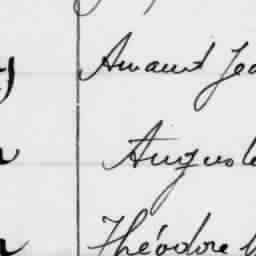 Amand Jea
Auguste
Théodore